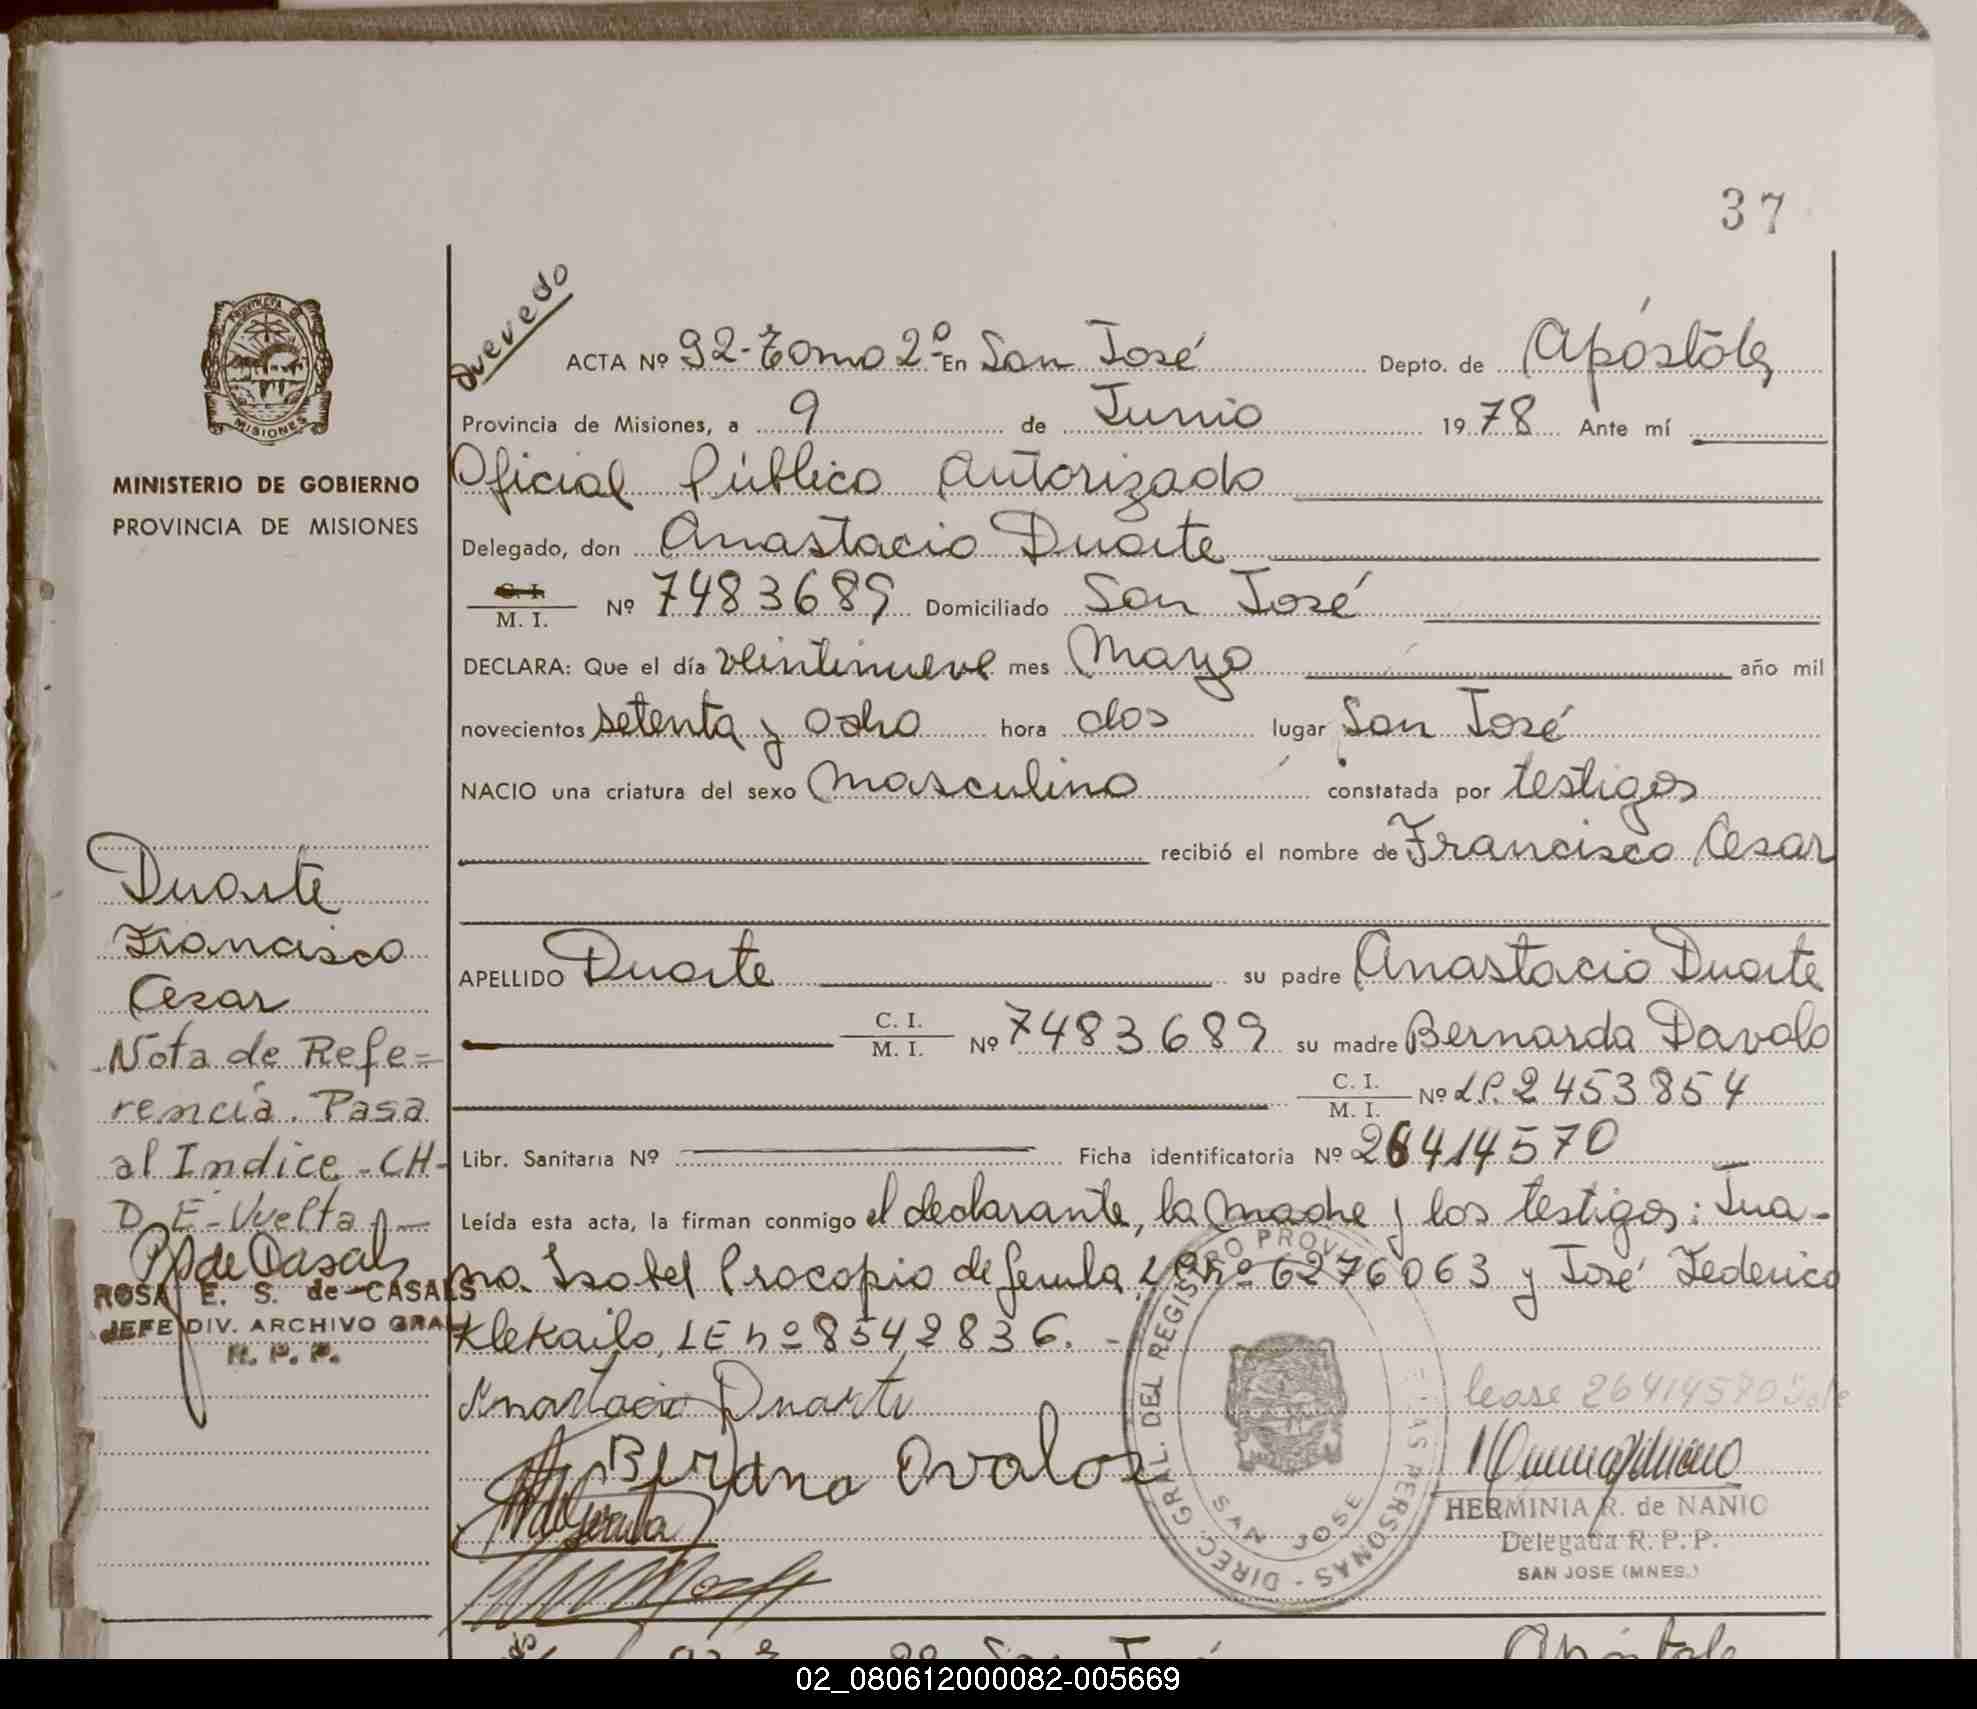 37
Quevedo
ACTA Nº 92-Tomo 2º En San José Depto. de Apóstoles
Provincia de Misiones, a 9 de Junio 1978 Ante mí
Oficial Público Autorizado
Delegado, don Anastacio Duarte
C. I. / M. I. Nº 7483689 Domiciliado San José
DECLARA: Que el día veintinueve mes Mayo año mil
novecientos setenta y ocho hora dos lugar San José
NACIO una criatura del sexo masculino constatada por testigos
recibió el nombre de Francisco Cesar
APELLIDO Duarte su padre Anastacio Duarte
C. I. / M. I. Nº 7483689 su madre Bernarda Davalo
C. I. / M. I. Nº LP. 2453854
Libr. Sanitaria Nº Ficha identificatoria Nº 26414570
Leída esta acta, la firman conmigo el declarante, la madre y los testigos: Jua-
na Isabel Procopio de Gerula, LC nº 6276063 y José Federico
Klekailo, LE nº 8542836. -
Anastacio Duarte
lease 26414570 Vale
Berdana Ovalos
DIREC. GRAL. DEL REGISTRO PROV. DE LAS PERSONAS - SAN JOSE
HERMINIA R. de NANIO
Delegada R. P. P.
SAN JOSE (MNES.)
PROVINCIA DE MISIONES
MINISTERIO DE GOBIERNO
PROVINCIA DE MISIONES
Duarte
Francisco
Cesar
Nota de Refe=
rencia. Pasa
al Indice - CH-
D E - Vuelta -
R S de Casals
ROSA E. S. de CASALS
JEFE DIV. ARCHIVO GRAL
R. P. P.
02_080612000082-005669